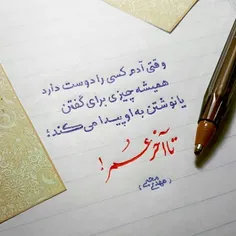 وقتی آدم کسی را دوست دارد
همیشه چیزی برای گفتن
یا نوشتن به او پیدا می‌کند؛
تا آخر عمر!